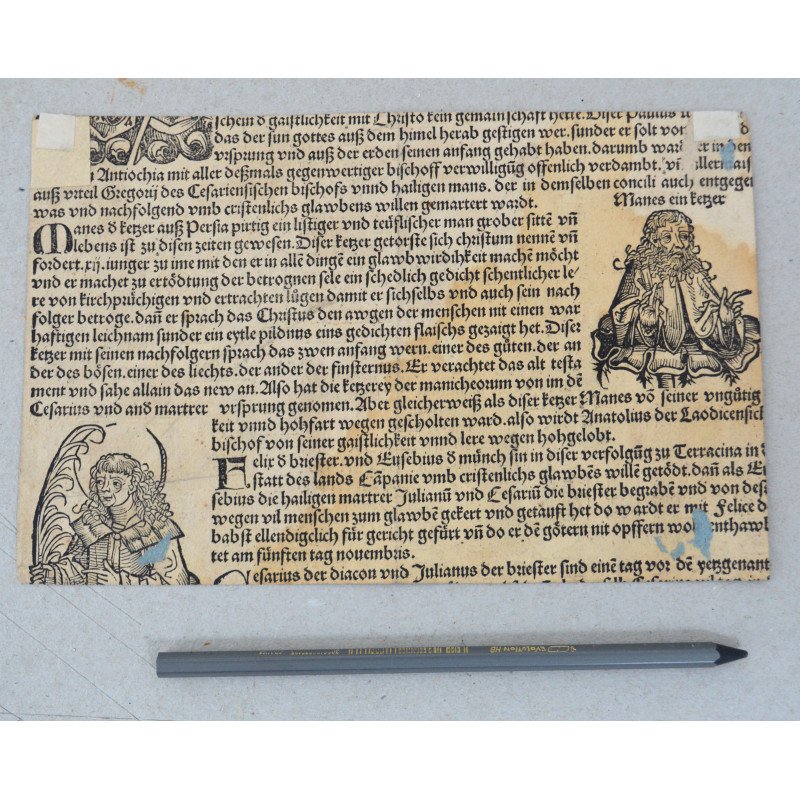 schein d gaistlichkeit mit Christo kein gemainschaft hette. Diser Paulus
das der sun gottes auß dem himel herab gestigen wer. sunder er solt vor
vrsprung vnd auß der erden seinen anfang gehabt haben. darumb ward er in den
Antiochia mit aller deßmals gegenwertiger bischoff verwilligũg offenlich verdambt.
auß vrteil Gregorij des Cesariensischen bischofs vnnd hailigen mans. der in demselben concili auch entgegẽ
was vnd nachfolgend vmb cristenlichs glawbens willen gemartert wardt.
Manes ein ketzer
Manes d ketzer auß Persia pürtig ein listiger vnd teüflischer man grober sittẽ vñ
lebens ist zu disen zeiten gewesen. Diser ketzer getorste sich christum nennẽ vñ
fordert. xij. iunger zu ime mit den er in allẽ dingẽ ein glawbwirdikeit machẽ möcht
vnd er machet zu ertödtung der betrognen sele ein schedlich gedicht schentlicher le/
re von kirchprüchigen vnd ertrachten lügen damit er sichselbs vnd auch sein nach
folger betroge. dañ er sprach das Christus den awgen der menschen nit einen war
haftigen leichnam sunder ein eytle pildnus eins gedichten flaischs gezaigt het. Diser
ketzer mit seinen nachfolgern sprach das zwen anfang wern. einer des gũten. der an
der des bösen. einer des liechts. der ander der finsternus. Er verachtet das alt testa
ment vnd sahe allain das new an. Also hat die ketzerey der manicheorum von im dẽ
Cesarius vnd and martrer vrsprung genomen. Aber gleicherweiß als diser ketzer Manes võ seiner vngütig
keit vnnd hohfart wegen gescholten ward. also wirdt Anatolius der Laodicensich
bischof von seiner gaistlichkeit vnnd lere wegen hohgelobt.
Felix d briester. vnd Eusebius d münch sin in diser verfolgũg zu Terracina in d
statt des lands Cãpanie vmb cristenlichs glawbẽs willẽ getödt. dañ als Eu
sebius die hailigen martrer Julianũ vnd Cesariũ die briester begrabẽ vnd von desz
wegen vil menschen zum glawbẽ gekert vnd getauft het do wardt er mit Felice d
babst ellendigclich für gericht gefürt vñ do er dẽ götern nit opffern wolt enthawb
tet am fünften tag nouembris.
Cesarius der diacon vnd Julianus der briester sind einẽ tag vor dẽ yetzgenant
EVOLUTION HB